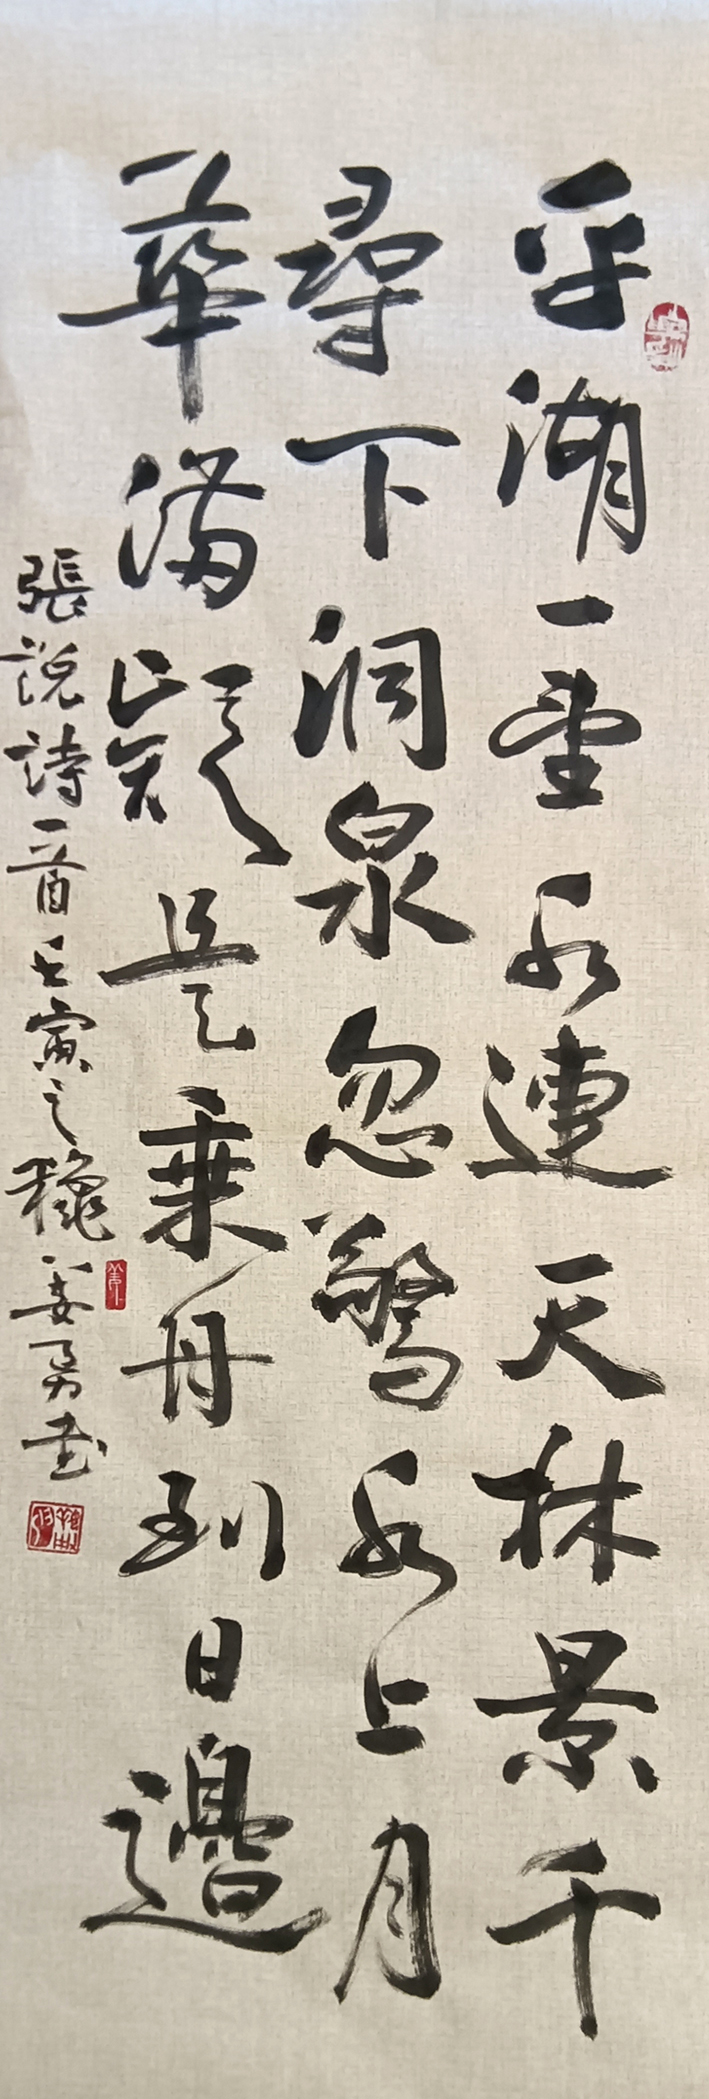 平湖一望水連天林景千
尋下洞泉忽驚水上月
華滿疑是乗舟到日邊
張說詩一首壬寅之穐姜勇书